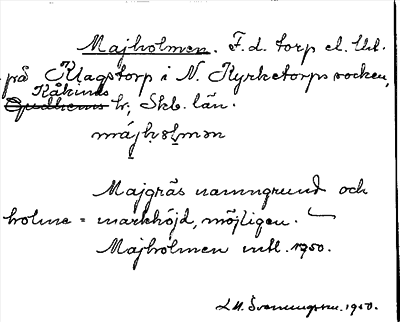 Majholmen. F.d. torp el. lht.
på Klagstorp i N. Kyrketorps socken,
Kåkinds
Gudhems hr, Skb. län.
Majgräs namngrund och
holme = markhöjd, möjligen.
Majholmen utl. 1950.
1950.